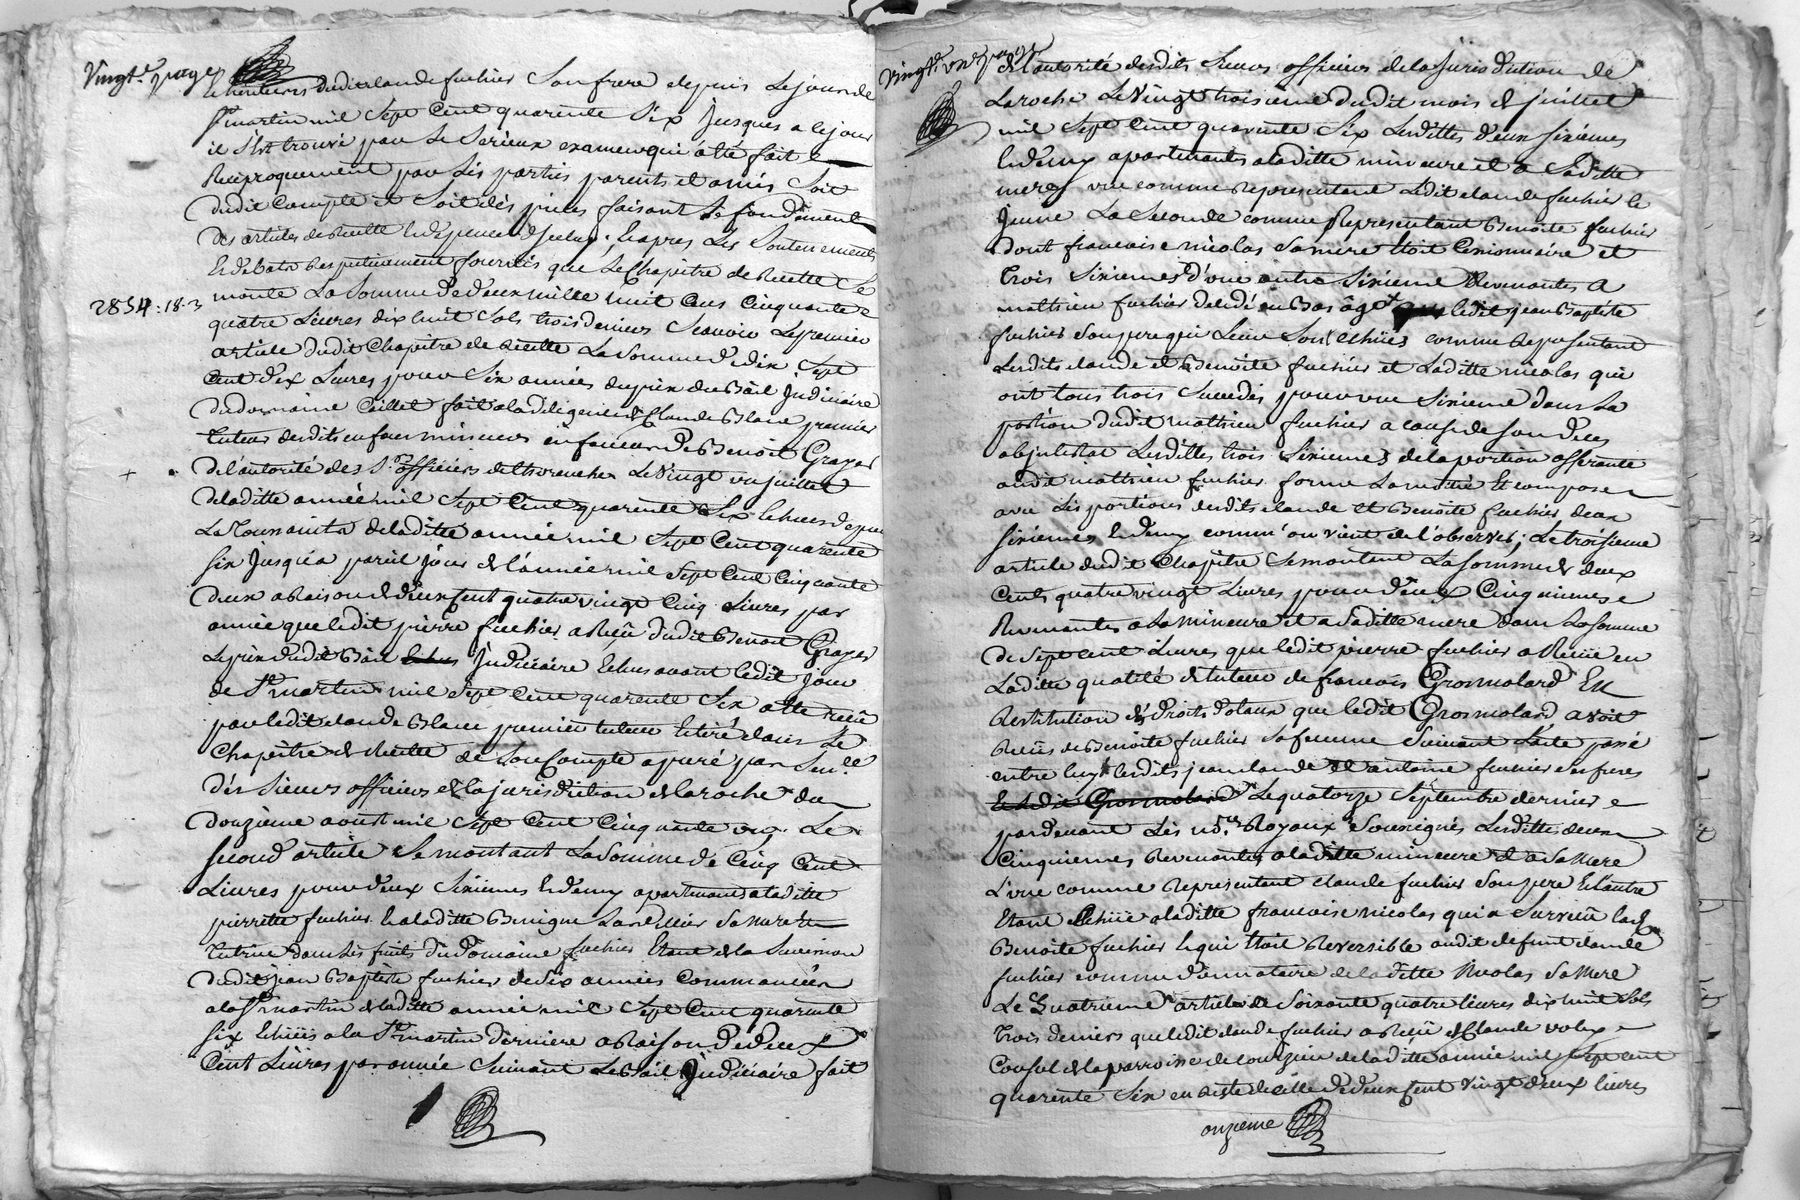 Vingt.e page
dudit claude fuchier Son frere depuis le jour de
St martin mil Sept Cent quarente Six Jusques a ce jour
il S'est trouvé par le Serieux examen qui a été fait
Reciproquement par les parties parents et amis Soit
dudit Compte et Soit des pieces faisant le fondement
des articles de Recette et depense d'Jceluy, Et apres Les Soutenements
Et debats Respectivement fournis que Le Chapitre de Recette Se
monte La Somme de deux mille huit Cens Cinquante
2854.18.3
quatre Livres dix huit Sols trois deniers Scavoir Le premier
article dudit Chapitre de Recette La Somme de dix Sept
Cent dix Livres pour Six années du prix du Bail Judiciaire
du domaine Caillet fait a la diligence de Claude Blanc premier
tuteur desdits enfans mineurs en faveur de Benoit Grayes
de l'autorité des Srs officiers de Le Vingt un juillet
de laditte année mil Sept Cent quarente Six Echues depuis
La Toussaints de laditte année mil Sept Cent quarente
Six Jusqu'a pareil jour de l'année mil Sept Cent Cinquante
deux a Raison de deux Cent quatre vingt Cinq Livres par
année que ledit pierre fuchier a Reçu dudit Benoit Grayes
Le prix dudit Bail Judiciaire Echus avant ledit jour
de St martin mil Sept Cent quarente Six a été reçu
par ledit claude Blanc premier tuteur Et tiré dans Le
Chapitre de Recette de Son Compte apuré par Sen.ce
des Sieurs officiers de la jurisdiction de Laroche du
douzieme aoust mil Sept Cent Cinquante un. Le
Second article Se montant La Somme de Cinq Cent
Livres pour deux Sixiemes Et demy apartenants a laditte
pierrette fuchier Et a laditte Benigne Sa Mere Et
tutrice dans les fruits du Domaine fuchier Etant de la Succession
dudit jean Baptiste fuchier de Six années Commancées
a la St martin de laditte année mil Sept Cent quarente
Six Echües a la St martin derniere a Raison de deux
Cent Livres par année Suivant Le Bail Judiciaire fait
Vingt.e une page
de l'autorité desdits Sieurs officiers de la Jurisdiction de
Laroche Le Vingt troisieme dudit mois de juillet
mil Sept Cent quarente Six Lesdittes deux sixiemes
Et demy apartenants a laditte mineure et a Saditte
mere, une comme Representant Ledit claude fuchier le
jeune La Seconde comme Representant Benoite fuchier
dont francoise nicolas Sa mere Etoit Cessionnaire et
trois Sixiemes d'une autre Sixieme Revenantes a
mathieu fuchier decedé en Bas âge ledit jean Baptiste
fuchier Son pere qui Leur Sont Echües comme Representant
Lesdits claude et Benoite fuchier et Laditte nicolas qui
ont tous trois Succedés pour une Sixieme dans La
portion dudit mathieu fuchier a cause de Son deces
abjntestat Lesdittes trois Sixiemes de la portion afferante
audit mathieu fuchier forme La moitié Et compose
avec Les portions desdits claude et Benoite fuchier deux
Sixiemes Et demy comm'on vient de l'observer; Le troisieme
article dudit Chapitre Se montant La Somme de deux
Cents quatre vingt Livres pour deux Cinquiemes
Revenantes a La mineure et a Saditte mere dans La Somme
de Sept Cent Livres que ledit pierre fuchier a Reçüe en
Laditte qualité de tuteur de francois Grosmolard En
Restitution de droits dotaux que ledit Grosmolard avoit
Reçüs de Benoite fuchier Sa femme Suivant l'acte passé
entre luy Lesdits jean claude et antoine fuchier Ses freres
Et Ledit Grosmolard Le quatorze Septembre dernier
pardevant Les nores Royaux Soussignés Lesdittes deux
Cinquiemes Revenantes a laditte mineure Et a Sa Mere
L'une comme Representant claude fuchier Son pere Et l'autre
Etant Echüe a laditte francoise nicolas qui a Survecû lad.
Benoite fuchier Et qui Etoit Reversible audit defunt claude
fuchier comme donnataire de laditte Nicolas Sa Mere
Le Quatrieme article de Soixante quatre livres dix huit Sols
trois deniers que ledit claude fuchier a Reçû de Claude
Consul de la parroisse de de laditte année mil Sept cent
quarente Six en Reste de celle de deux Cent vingt deux livres
onzieme